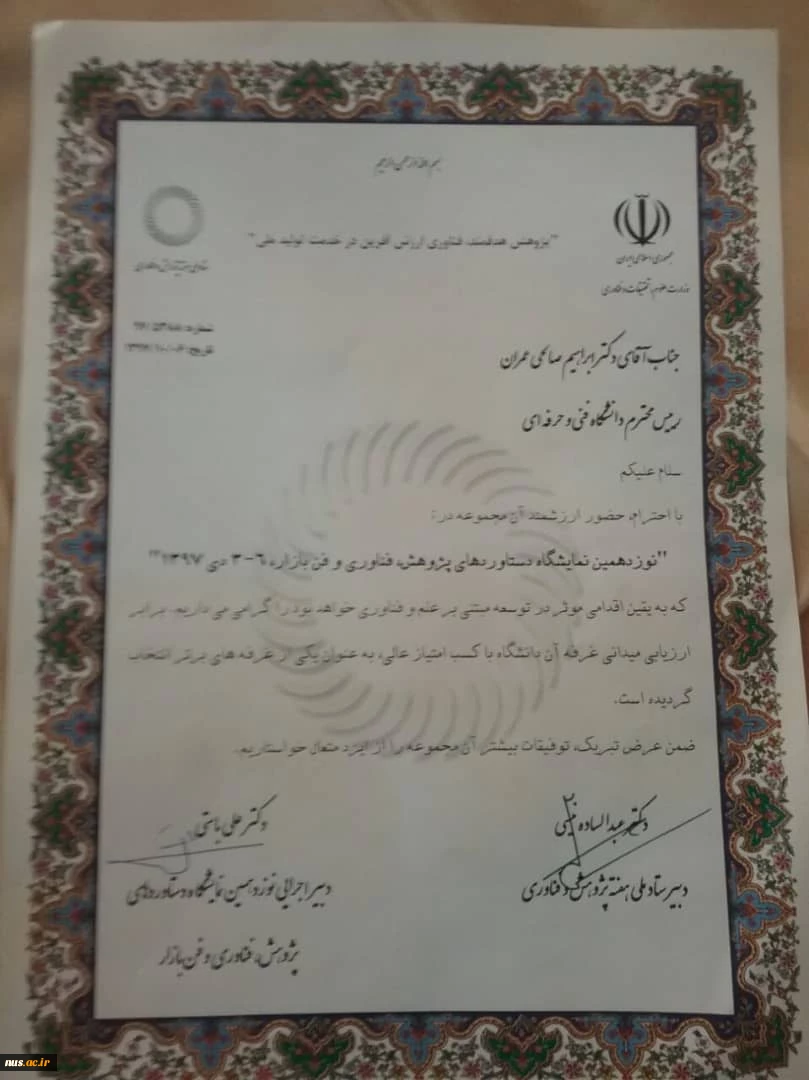 بسم الله الرحمن الرحیم
"پژوهش هدفمند، فناوری ارزش آفرین در خدمت تولید ملی"
جمهوری اسلامی ایران
وزارت علوم، تحقیقات و فناوری
ستاد ملی هفته پژوهش و فناوری
شماره:
تاریخ:
جناب آقای دکتر ابراهیم صالحی عمران
رییس محترم دانشگاه فنی و حرفه ای
سلام علیکم
با احترام، حضور ارزشمند آن مجموعه در:
"نوزدهمین نمایشگاه دستاوردهای پژوهش، فناوری و فن بازار، ٦-٣ دی ١٣٩٧"
که به یقین اقدامی موثر در توسعه مبتنی بر علم و فناوری خواهد بود را گرامی می داریم. برابر
ارزیابی میدانی غرفه آن دانشگاه با کسب امتیاز عالی، به عنوان یکی از غرفه های برتر انتخاب
گردیده است.
ضمن عرض تبریک، توفیقات بیشتر آن مجموعه را از ایزد متعال خواستاریم.
دکتر عبدالساده نیسی
دبیر ستاد ملی هفته پژوهش و فناوری
دکتر علی باستی
دبیر اجرایی نوزدهمین نمایشگاه دستاوردهای
پژوهش، فناوری و فن بازار
nus.ac.ir